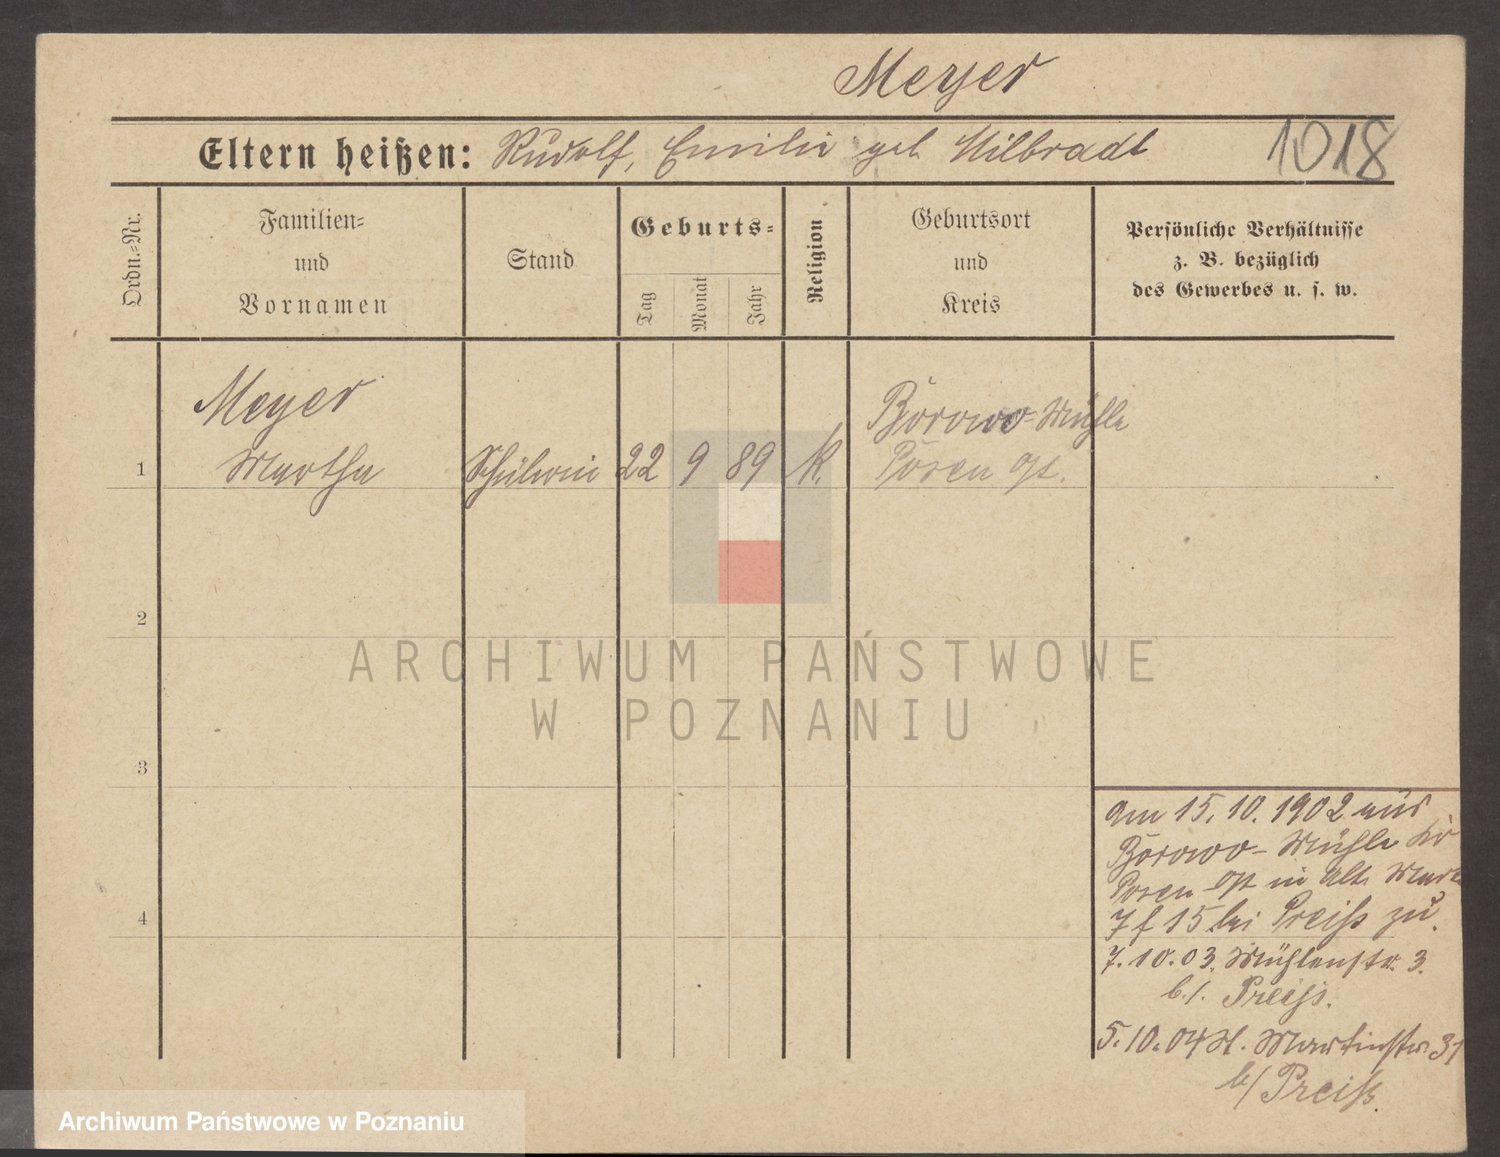 Meyer
Eltern heißen: Rudolf, Emilie geb. Hilbradt
1018
Ordn.-Nr.
Familien-
und
Vornamen
Stand
Geburts-
Tag
Monat
Jahr
Religion
Geburtsort
und
Kreis
Persönliche Verhältnisse
z. B. bezüglich
des Gewerbes u. s. w.
Meyer
Borowo-Mühle
1 Martha Schülerin 22 9 89 K. Posen Ost.
2
3
4
am 15. 10. 1902 aus
Borowo-Mühle Kr
Posen Ost in Alt.
7 f 15 bei Preiss zu.
7. 10. 03. Mühlenstr. 3.
b./. Preiss.
5. 10. 04 St. Martinstr. 31
b/ Preiss.
ARCHIWUM PAŃSTWOWE
W POZNANIU
Archiwum Państwowe w Poznaniu